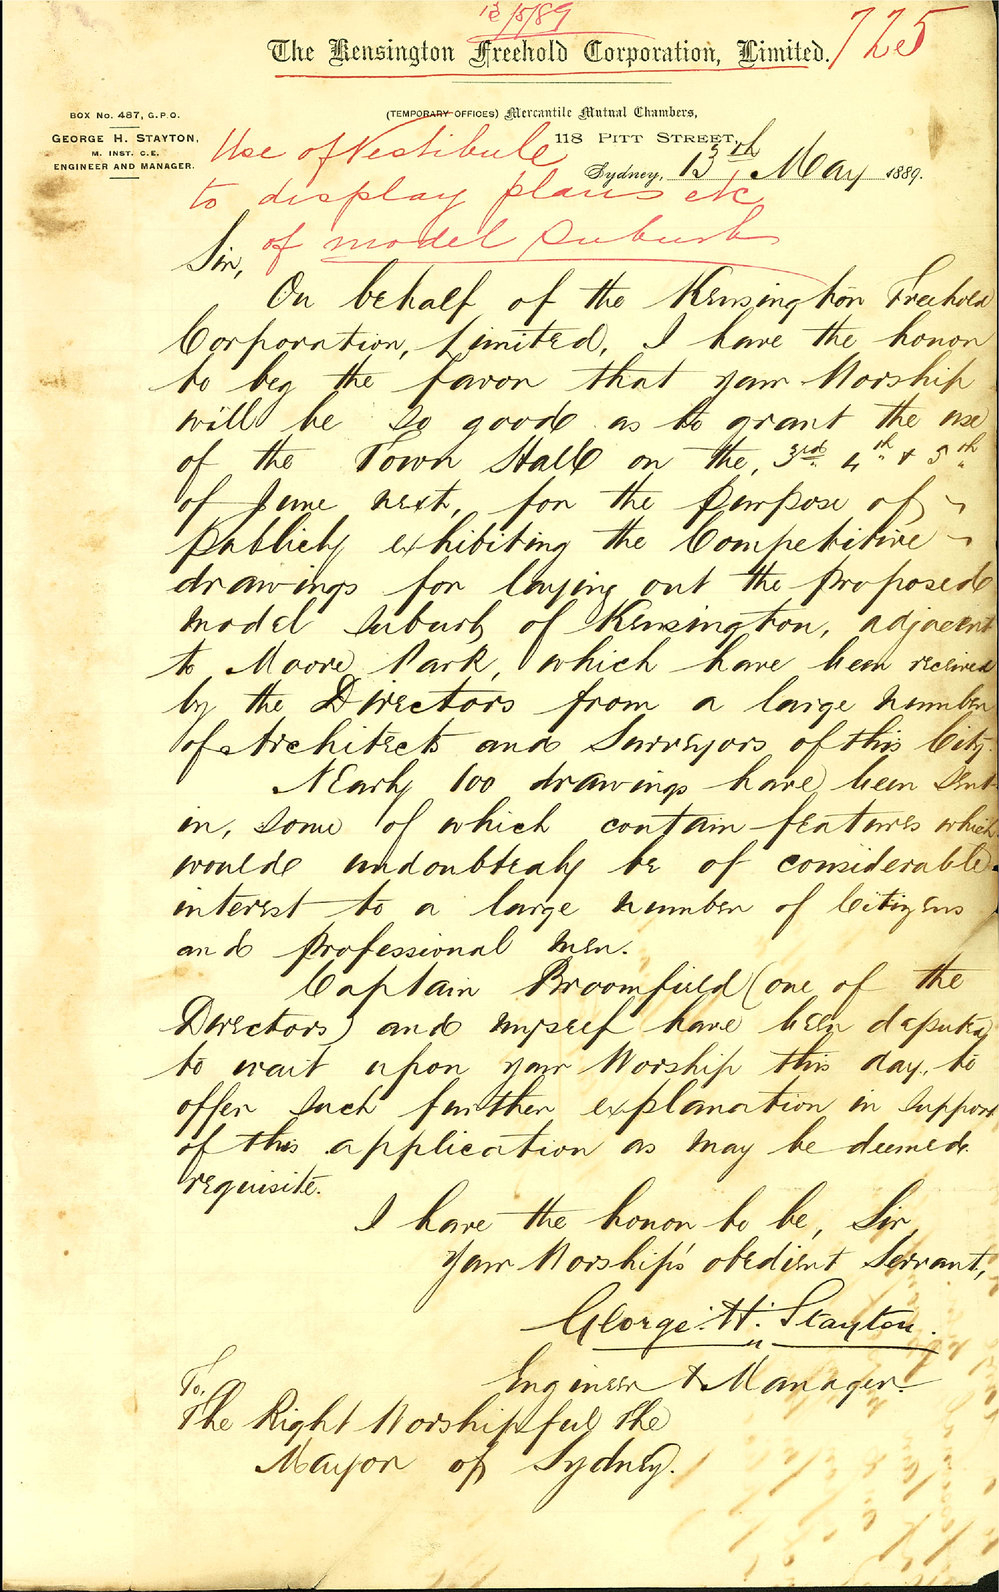 13/5/89
725
The Kensington Freehold Corporation, Limited.
BOX No. 487, G.P.O.
GEORGE H. STAYTON,
M. INST. C.E.
ENGINEER AND MANAGER.
(TEMPORARY OFFICES) Mercantile Mutual Chambers,
118 PITT STREET,
Sydney, 13th May 1889.
Use of Vestibule
to display plans etc
of model suburb
Sir,
On behalf of the Kensington Freehold
Corporation, Limited, I have the honor
to beg the favor that your Worship
will be so good as to grant the use
of the Town Hall on the, 3rd 4th & 5th
of June next, for the purpose of
publicly exhibiting the Competitive
drawings for laying out the proposed
model suburb of Kensington, adjacent
to Moore Park, which have been received
by the Directors from a large number
of Architects and Surveyors of this City.
Nearly 100 drawings have been sent
in, some of which contain features which
would undoubtedly be of considerable
interest to a large number of Citizens
and professional men.
Captain Broomfield (one of the
Directors) and myself have been deputed
to wait upon your Worship this day, to
offer such further explanation in support
of this application as may be deemed
requisite.
I have the honor to be, Sir,
Your Worship's obedient Servant,
George H. Stayton.
Engineer & Manager.
To,
The Right Worshipful the
Mayor of Sydney.